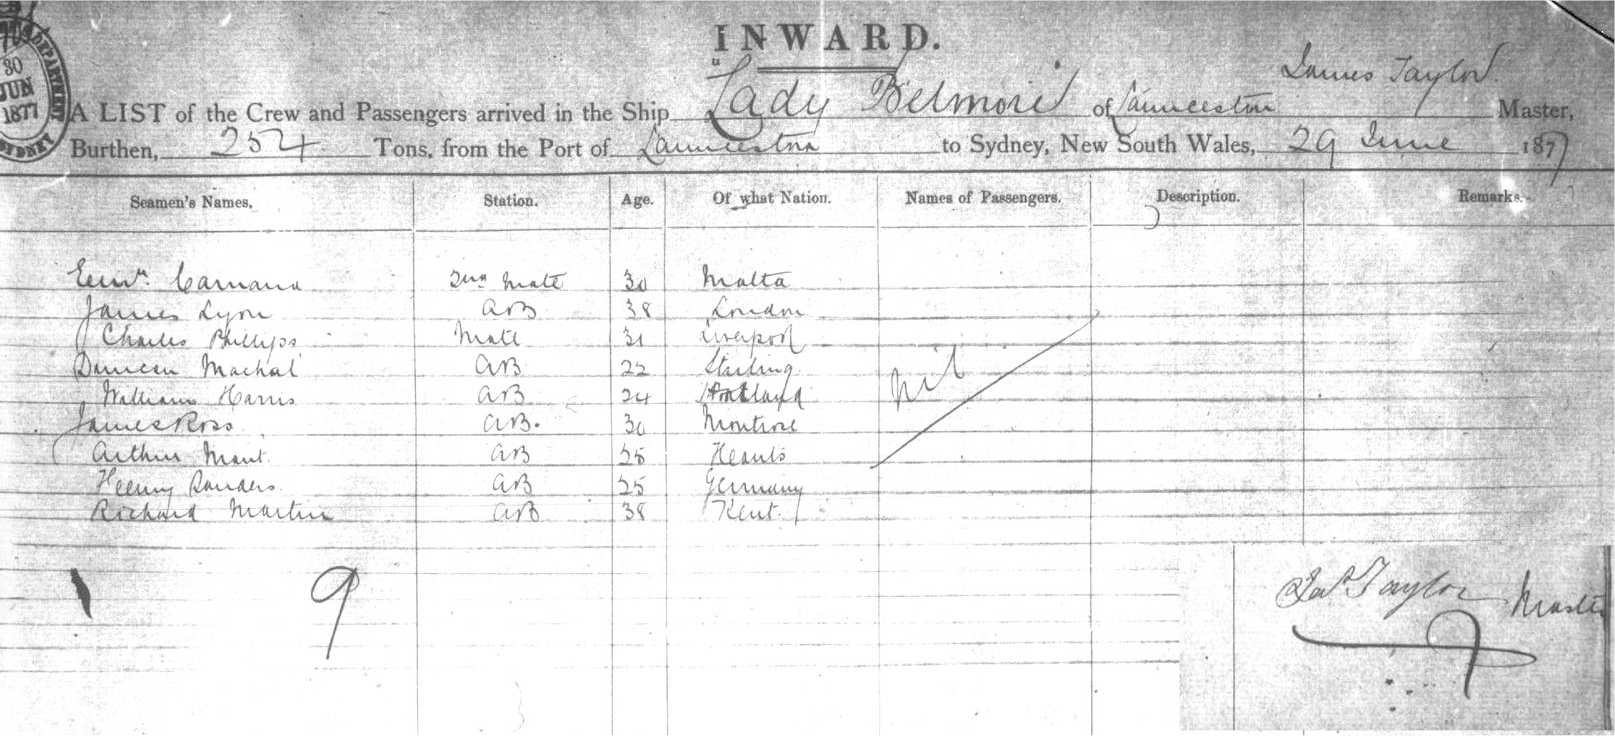 DEPARTMENT
30
JUN
1877
SYDNEY
INWARD.
James Taylor
A LIST of the Crew and Passengers arrived in the Ship "Lady Belmore of Launceston Master,
Burthen, 254 Tons, from the Port of Launceston to Sydney, New South Wales, 29 June 1877
Seamen's Names. Station. Age. Of what Nation. Names of Passengers. Description. Remarks.
2nd Mate 30 Malta
James Lyon AB 38 London
Charles Phillips Mate 31 Liverpool
Duncan AB 22 Starling
William Harris AB 24
James Ross AB. 30 Montrose
Arthur AB 25
Henry Sanders AB 25 Germany
Richard Martin AB 38 Kent
nil
9
Jas Taylor Master